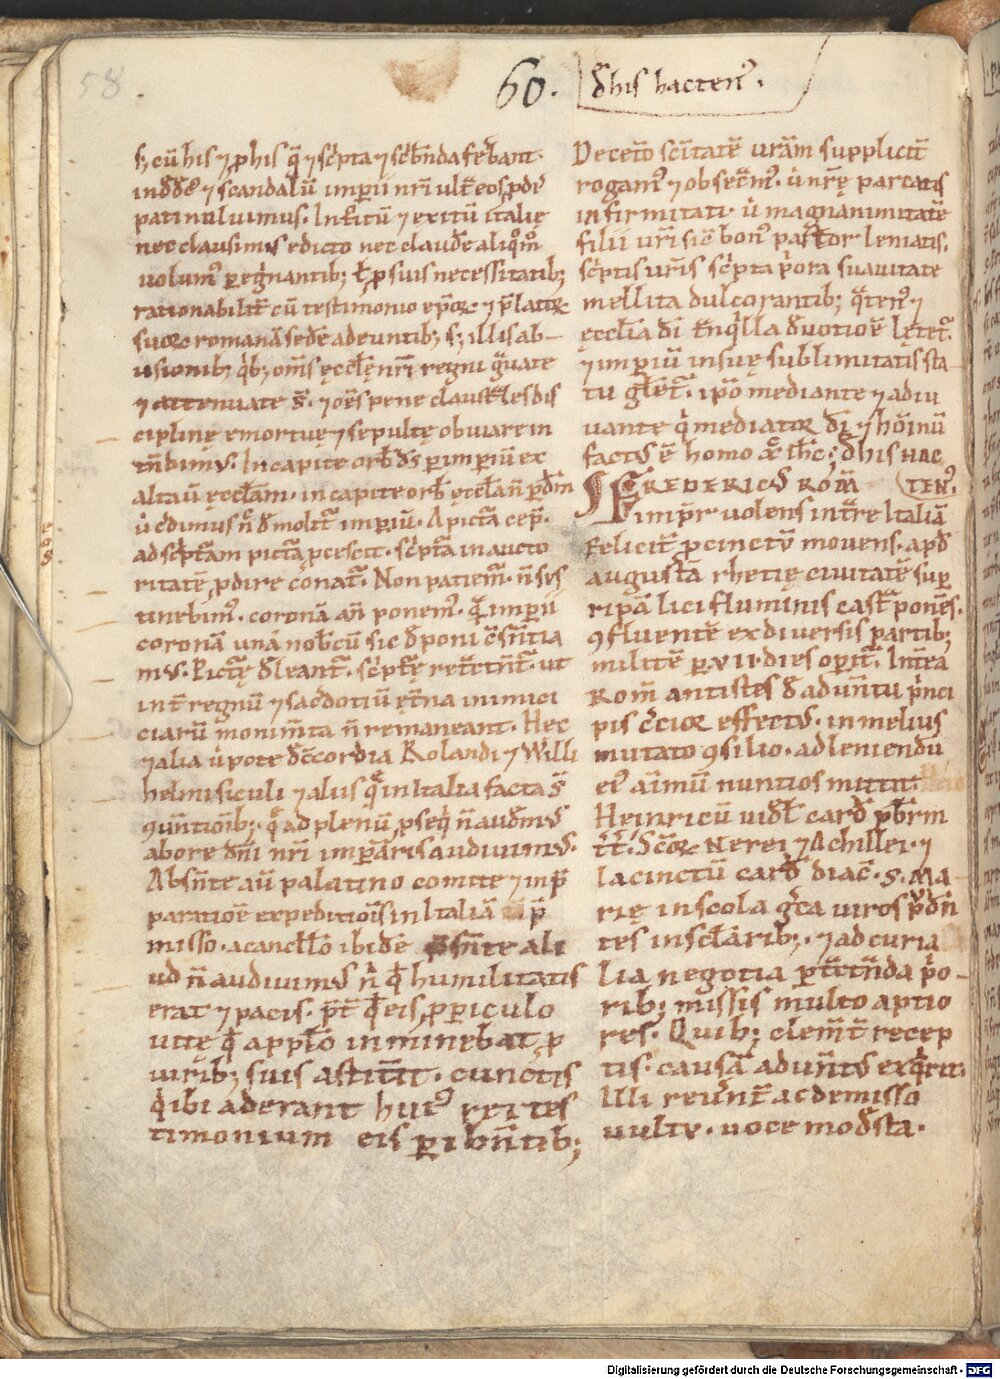 58.
60. đhis hacten᾽.
s; cū his ⁊ p his q̄ ⁊ sc̄pta ⁊ sc̄bēnda ferebant.
patin nluimus. Intͥtū ⁊ exitū italię
nec clausim᾽ edicto nec claudͤe aliqͦmͦ
volum᾽ peregͥnantib; ł p suis necessitatib;
rationabilit̄ cū testimonio ep̄oꝝ ⁊ p̄latoꝝ
suoꝝ romanā sedē adeuntib; s; illis ab-
usionib; qͥb; om̄s ęccłę nr̄i regni gͣuate
⁊ attenuate s̄. ⁊ oēs pene claustͣles dis
ciplinę emortuę ⁊ sepultę obuiare in
tēndim᾽. In capite orb̄ ds̄ p imperiū ex
altauͥ ęccłam. in capite orb̄ ęccłа n̄ p dm̄
ut c̄dimus n̄c demolit᷑ imperiū. A pictͣa cep̄.
ad sc̄pturam pictͣa pcescit. sc̄ptͣa in aucto
ritatē, pdire conat᷑. Non patiem᷑. n̄ sus
tinebim᾽. coronā an̄ ponem᾽. qͣ imperii
coronā unā nob̄cū sic deponi c̄sentia
m᾽. Pictͣę deleant᷑. sc̄ptͣę retͣctent᷑. ut
int̄ regnū ⁊ sacdotiū ęt̄na inimici
ciarū monimͭta n̄ remaneant. Hec
⁊ alia uͥpote đ c̄cordia Rolandi ⁊ Willi
helmi siculi ⁊ aliis q̄ in Italia facta s̄
9uentionib; q̄ ad plenū pseqͥ n̄ audem᾽
ab ore dn̄i nr̄i impͣaris audiuim᾽.
Absente aū palatino comite ⁊ in p̄
paratioē expeditiōis in Italiā p̄
misso. a cancełło ibidē p̄sente ali
ud n̄ audiuim᾽ n̄ qđ humilitatis
erat ⁊ pacis. p̄t qđ eis, p periculo
uitę qđ apłło imminebat, p
uirib; suis astitit. cunctis
qͥ ibi aderant hui᾽ rei tes
timonium eis phibentib;
De cet̄o sc̄itatē ur̄am supplicit̄
rogam᾽ ⁊ obsecͣm᾽. ut nr̄ę parcatis
infirmitati. ut magnanimitatē
filii ur̄i sic bon᾽ pastor leniatis,
sc̄ptis ur̄is sc̄pta pͥora suauitate
mellita dulcorantib; qͣten᾽ ⁊
ecclia di tͣnqͥlla deuotiōe lętet᷑.
⁊ imperiū in suę sublimitatis sta
tu głiet᷑. ipͦ mediante ⁊ adiu
uante qͥ mediator di ⁊ hoīnū
fact᾽ ē homo xͦc ihc; đhis HAC
FREDERIC᾽ ROM̄ (TEN᾽.
impr uolens intͣre Italiā
felicit̄ pcinctū mouens. apđ
augustā rhetię ciuitatē sup
ripā lici fluminis castͣ ponēs.
9fluentē ex diuersis partib;
militē p. VII. dies operit᷑. Intͤea
Rom̄ antistes đ aduentu pͥnci
pis c̄cior effect᾽. in melius
mutato 9silio. ad leniendū
ei᾽ aīmū nuntios mittit.
Heinricū uiđł carđ pbr̄m
tt̄. Sc̄oꝝ Nerei ⁊ Achillei. ⁊
Iacinctū carđ diac̄. S. MA-
rię in scola gͤca uiros pͥuden
tes in scłarib;. ⁊ ad curia
lia negotia ptͣctanda pͥo-
rib; missis multo aptio
res. Quib; clemt̄ recep
tis. causā aduent᾽ exqͥrit.
Illi reuent᷑ ac demisso
uultu. uoce modesta.
Digitalisierung gefördert durch die Deutsche Forschungsgemeinschaft · DFG